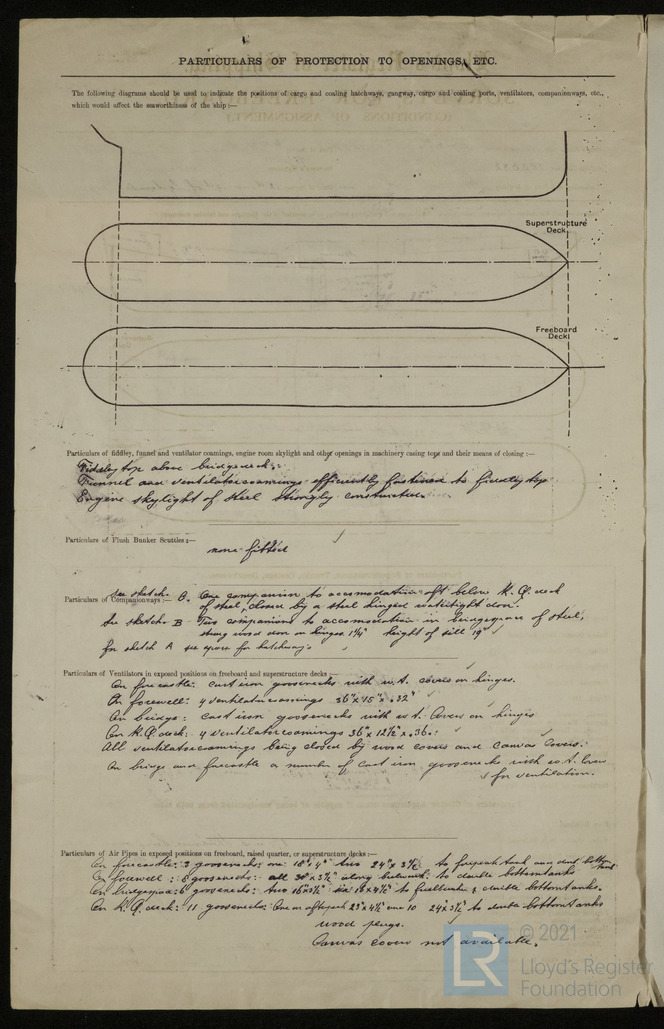 PARTICULARS OF PROTECTION TO OPENINGS, ETC.
The following diagrams should be used to indicate the positions of cargo and coaling hatchways, gangway, cargo and coaling ports, ventilators, companionways, etc.,
which would affect the seaworthiness of the ship:—
Superstructure
Deck.
Freeboard
Deck.
Particulars of fiddley, funnel and ventilator coamings, engine room skylight and other openings in machinery casing tops and their means of closing :—
Fiddley top above bridgedeck.
Funnel and ventilatorcoamings efficiently fastened to fiddley top
Engine skylight of steel strongly constructed.
Particulars of Flush Bunker Scuttles:—
none fitted
see sketch B. One companion to accomodation aft below R. Q. deck
Particulars of Companionways:— of steel, closed by a steel hinged watertight door.
See sketch B Two companions to accomodation in bridgespace of steel,
strong wood door on hinges 1¾" height of sill 19"
for sketch A see space for hatchways
Particulars of Ventilators in exposed positions on freeboard and superstructure decks:—
On forecastle: cast iron goosenecks with w.t. covers on hinges.
On forewell: 4 ventilatorcoamings 36" x 15" x .32"
On bridge: cast iron goosenecks with w.t. Covers on hinges
On R.Q. deck: 4 ventilatorcoamings 36" x 12½" x .36.
All ventilatorcoamings being closed by wood covers and canvas Covers.
On bridge and forecastle a number of cast iron goosenecks with w.t. Covers
for ventilation.
Particulars of Air Pipes in exposed positions on freeboard, raised quarter, or superstructure decks:—
On forecastle: 3 goosenecks: one 18" 4" two 24" x 3½ to forepeaktank and doubl bottomtank
On forewell: 8 goosenecks: all 30" x 3½" along bulwark: to double bottomtanks
On bridgespace: 8 goosenecks: two 16" 3½" six 18 x 4½" to & double bottomtanks.
On R.Q. deck: 11 goosenecks: One on afterpeak 23" x 4½ 10 24" x 3½" to double bottomtanks
wood plugs.
Canvas covers not available.
LR
© 2021
Lloyd's Register
Foundation